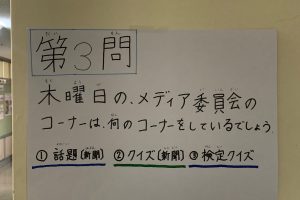 第3問
木曜日の、メディア委員会の
コーナーは、何のコーナーをしているでしょう。
①話題〔新聞〕 ②クイズ〔新聞〕 ③検定クイズ